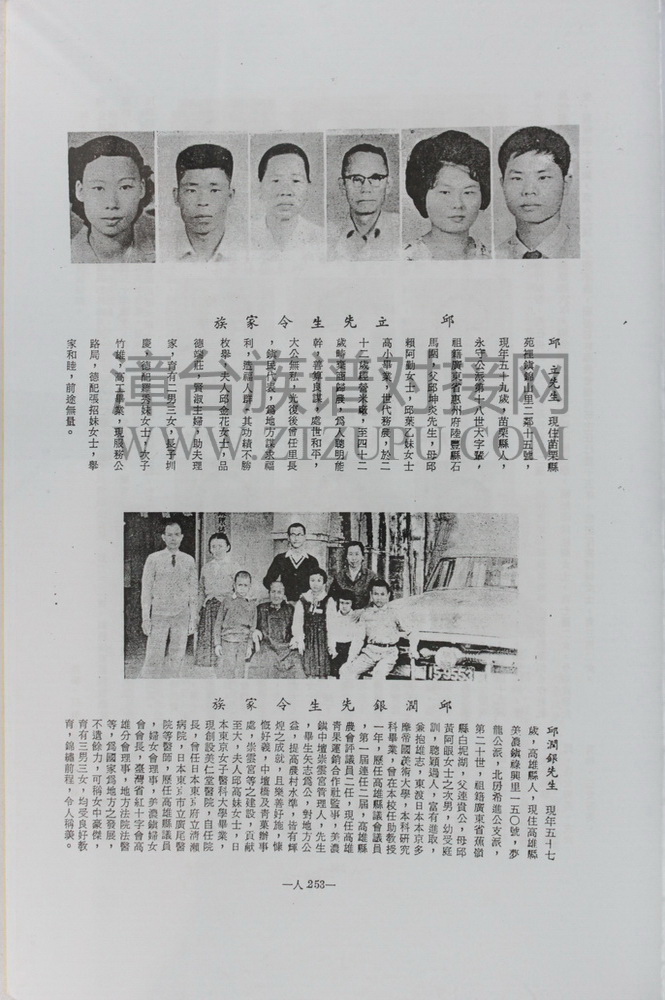 族家令生先立 邱
邱 立先生 現住苗栗縣
苑裡鎮錦山里二鄰十五號，
現年五十九歲，苗栗縣人，
永守公派第十八世大字輩，
祖籍廣東省惠州府陸豐縣石
馬圍，父邱坤炎先生，母邱
賴阿勤女士，邱葉乙妹女士
高小畢業，世代務農，於二
十二歲經營米廠，至四十二
歲時棄商歸農，爲人聰明能
幹，善算良謀，處世和平，
大公無私，光復後曾任里長
，鎮民代表，爲地方謀幸福
利，造福人群，其功績不勝
枚舉，夫人邱金花女士，品
德端莊，賢淑主婦，助夫理
家，育有二男三女，長子圳
慶，德配羅秀妹女士，次子
竹雄，高工畢業，現服務公
路局，德配張招妹女士，舉
家和睦，前途無量。
族家令生先銀潤邱
邱潤銀先生 現年五十七
歲，高雄縣人，現住高雄縣
美濃鎮綠興里一五〇號，夢
龍公派，北房希進公支派，
第二十世，祖籍廣東省蕉嶺
縣白坭湖，父連貴公，母邱
黃阿眼女士之次男，幼受庭
訓，聰穎過人，富有進取，
兼抱雄志，東渡日本東京多
摩帝國美術大學，本科研究
科畢業，曾在本校任助教授
一年，歷任高雄縣議會議員
，第一屆連任二屆，高雄縣
農會評議員二任，現任高雄
青果運銷合作社監事，美濃
鎮中壇崇雲宮管理人，先生
，畢生矢志爲公，對地方公
益，提高農村水準，皆有輝
煌之成就，且樂善好施，慷
慨好義，中壇橋及青菓辦事
處，崇雲宮等之建設，貢獻
至大，夫人邱高妹女士，日
本東京女子醫科大學畢業，
現創設美仁堂醫院，自任院
長，曾任日本東京府立清瀨
病院，日本東京市立廣尾醫
院等醫師，歷任高雄縣議員
，婦女會理事，美濃鎮婦女
會會長，臺灣省紅十字會高
雄分會理事，地方法院法醫
等，爲國家爲地方之發展，
不遺餘力，可稱女中豪傑，
育有三男三女，均受良好教
育，錦繡前程，令人稱羨。
—人 253—
尋合族谱对接网
WWW.ZIZUPU.COM